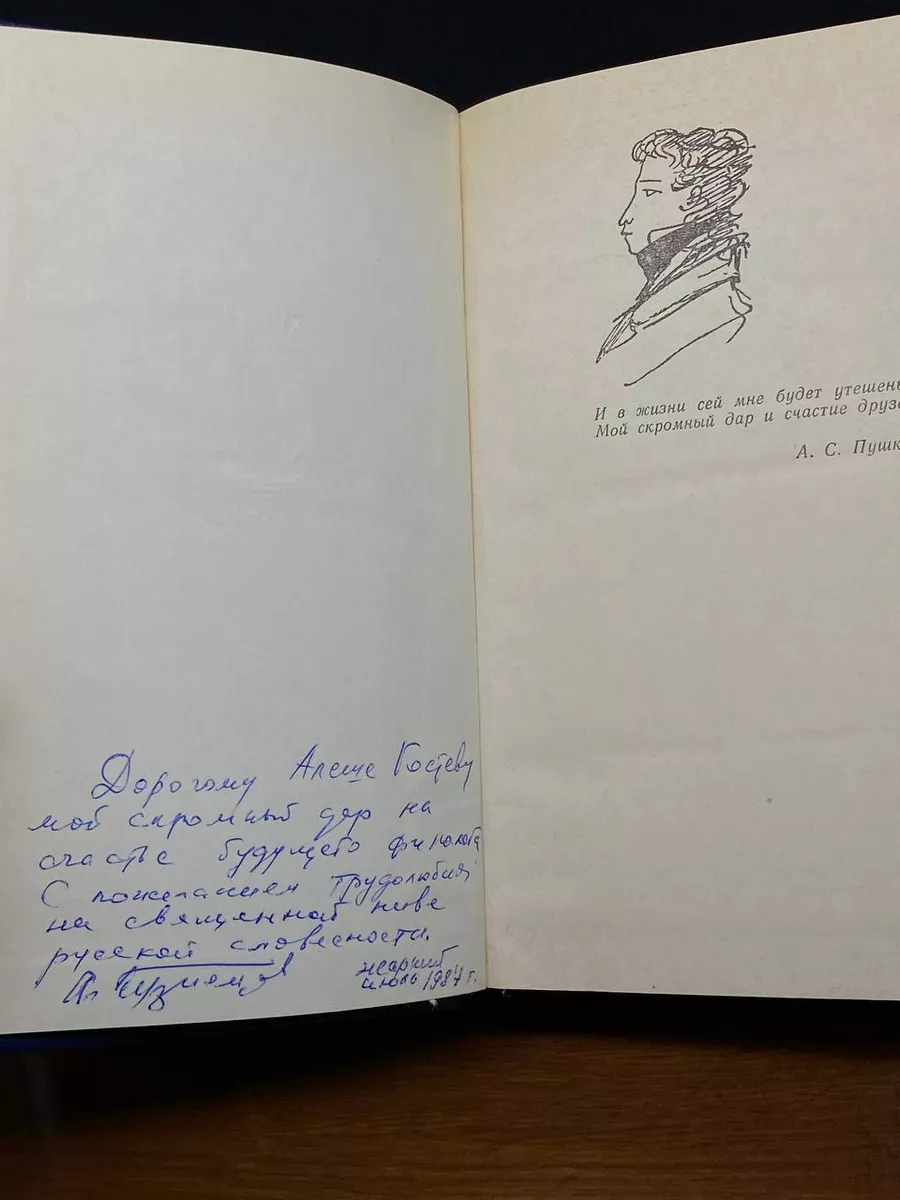 Дорогому Алеше Костеву
мой скромный дар на
счастье будущего филолога
С пожеланием трудолюбия
на священной ниве
русской словесности.
жаркий
июль 1984 г.
И в жизни сей мне будет утешень
Мой скромный дар и счастие друзе
А. С. Пушк